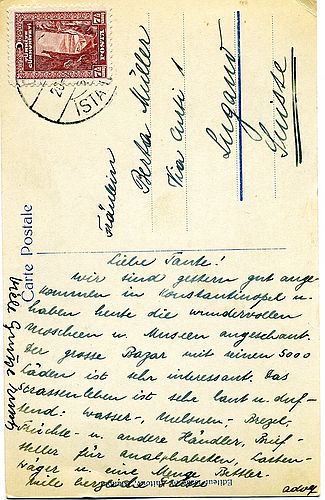 Fräulein
Berta Müller
Via Curti 1
Lugano
Suisse
Carte Postale
POSTA
ISTA
Liebe Tante!
Wir sind gestern gut ange-
kommen in Konstantinopel u.
haben heute die wundervollen
Moscheen u. Museen angeschaut.
Der grosse Bazar mit seinen 5000
Läden ist sehr interessant. Das
Strassenleben ist sehr laut u. duf-
tend: Wasser-, Melonen-, Brezel,
Früchte- u. andere Händler, Brief-
steller für Analphabeten, Lasten-
träger u. eine Menge Bettler.
Viele herzl. Grüsse
Viele Grüsse